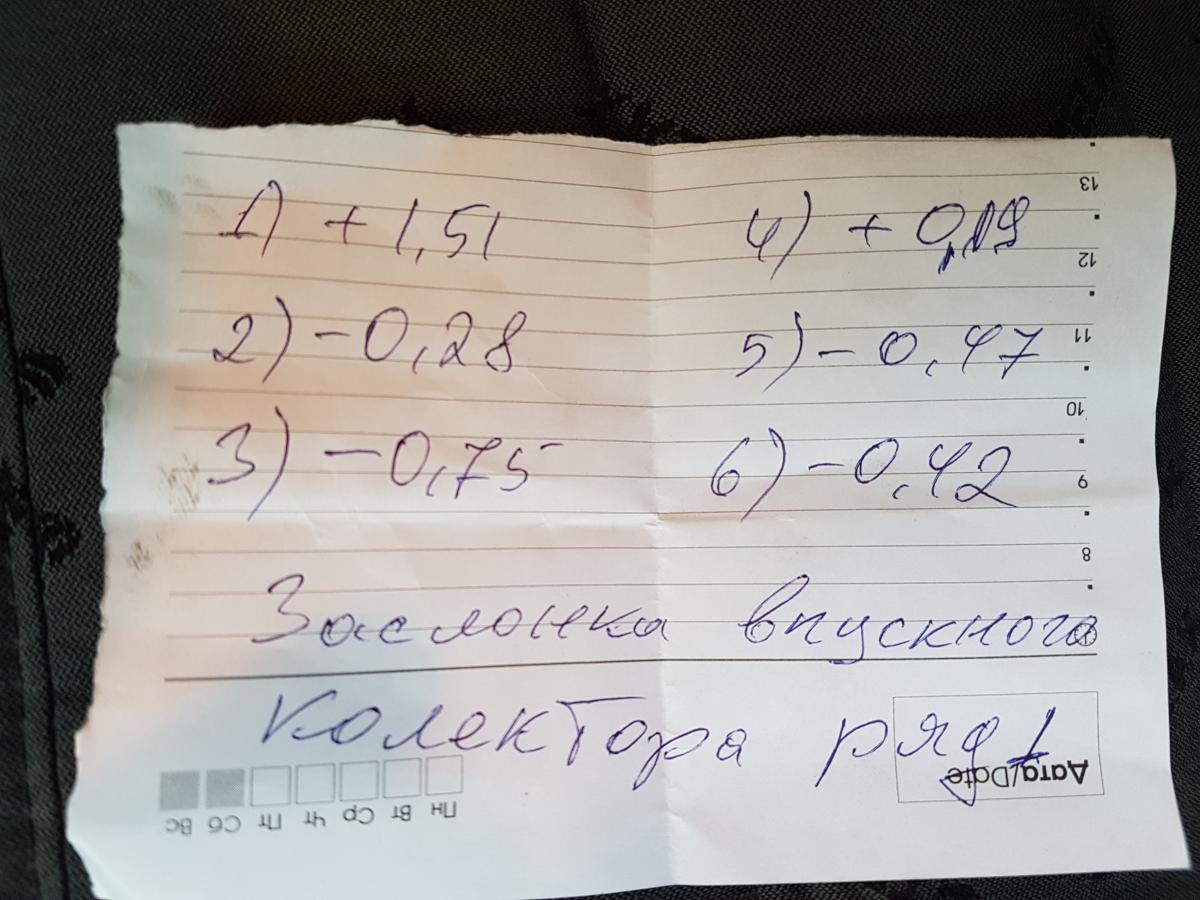 1) + 1,51 4) + 0,19
2) - 0,28 5) - 0,47
3) - 0,75 6) - 0,42
Заслонка впускного
колектора ряд 1
13
12
11
10
9
8
Дата/Date
Пн Вт Ср Чт Пт Сб Вс